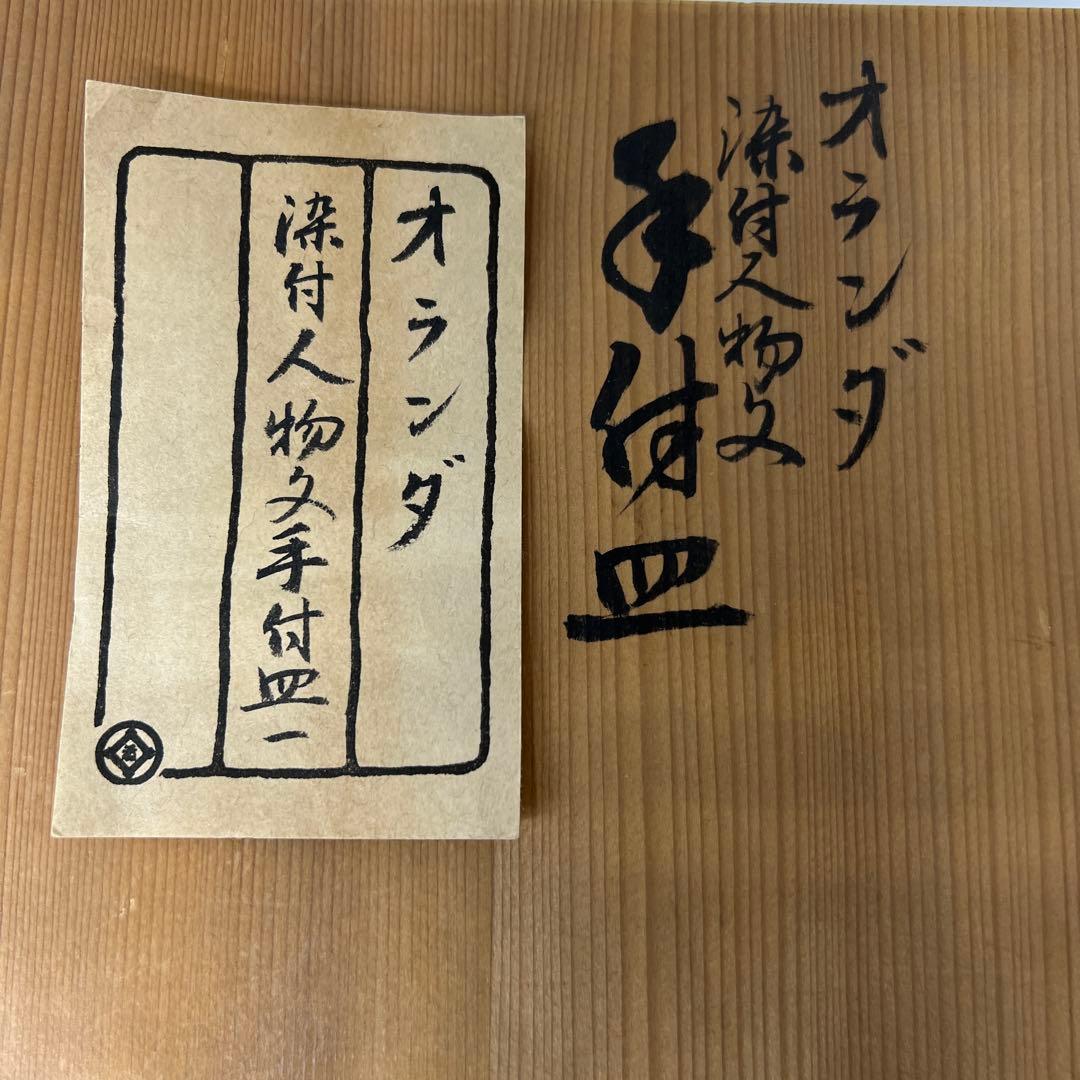 オランダ
染付人物文
手付皿
オランダ
染付人物文手付皿一